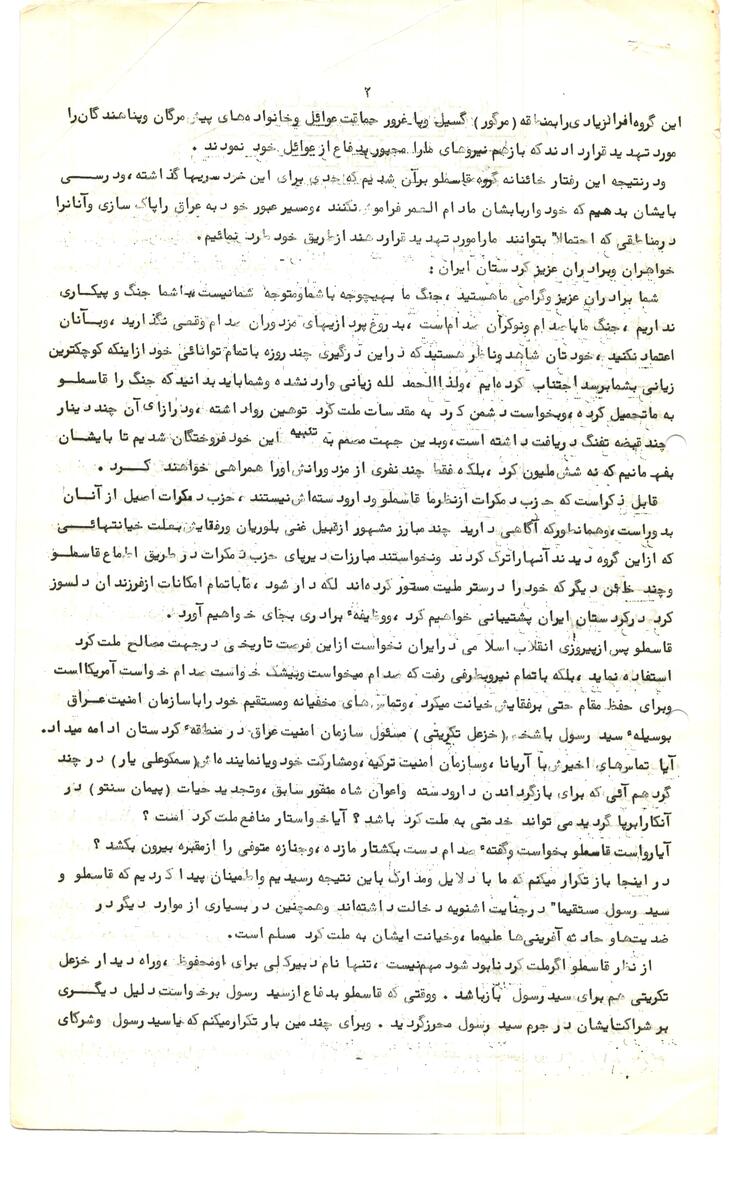 ۲
این گروه افراد زیادی را بمنطقه (مرگور) گسیل وبا غرور حماقت عوائل وخانواده‌های پیش مرگان وپناهندگان را
مورد تهدید قرار دادند که بازهم نیروهای مارا مجبور بدفاع از عوائل خود نمودند .
ودرنتیجه این رفتار خائنانه گروه قاسملو برآن شدیم که حدی برای این خرد سریها گذاشته ،ودرسی
بایشان بدهیم که خود واربابشان مادام العمر فراموش نکنند ،ومسیر عبور خود به عراق راپاک سازی وآنانرا
درمناطقی که احتمالا" بتوانند مارامورد تهدید قرار دهند ازطریق خود طرد نمائیم.
خواهران وبرادران عزیز کردستان ایران :
شما برادران عزیز وگرامی ماهستید ،جنگ ما بهیچوجه باشما ومتوجه شمانیست ،باشما جنگ و پیکاری
نداریم ،جنگ ما باصدام ونوکران صدام است ،بدروغ پردازیهای مزدوران صدام وقعی نگذارید ،وبآنان
اعتماد نکنید ،خودتان شاهد وناظر هستید که دراین درگیری چند روزه باتمام توانائی خود ازاینکه کوچکترین
زیانی بشما برسد اجتناب کرده‌ایم ،ولذا الحمد لله زیانی وارد نشده وشماباید بدانید که جنگ را قاسملو
به ماتحمیل کرده ،وبخواست دشمن کرد به مقدسات ملت کرد توهین روا داشته ،ودرازای آن چند دینار
چند قبضه تفنگ دریافت داشته است ،وبدین جهت مصمم به تنبیه این خود فروختگان شدیم تا بایشان
بفهمانیم که نه شش ملیون کرد ،بلکه فقط چند نفری از مزدورانش اورا همراهی خواهند کرد .
قابل ذکراست که حزب دمکرات ازنظرما قاسملو ودارودسته‌اش نیستند ،حزب دمکرات اصیل از آنان
بدوراست ،وهمانطورکه آگاهی دارید چند مبارز مشهور ازقبیل غنی بلوریان ورفقایش بعلت خیانتهائی
که ازاین گروه دیدند آنهاراترک کردند ونخواستند مبارزات دیرپای حزب دمکرات در طریق اطماع قاسملو
وچند خائن دیگر که خود را درستر ملیت مستور کرده‌اند لکه دار شود ،ماباتمام امکانات ازفرزندان دلسوز
کرد درکردستان ایران پشتیبانی خواهیم کرد ،ووظیفهٔ برادری بجای خواهیم آورد .
قاسملو پس ازپیروزی انقلاب اسلامی درایران نخواست ازاین فرصت تاریخی درجهت مصالح ملت کرد
استفاده نماید ،بلکه باتمام نیرو بطرفی رفت که صدام میخواست وبیشک خواست صدام خواست آمریکااست
وبرای حفظ مقام حتی برفقایش خیانت میکرد ،وتماس‌های مخفیانه ومستقیم خود راباسازمان امنیت عراق
بوسیلهٔ سید رسول باشخص (خزعل تکریتی) مسئول سازمان امنیت عراق در منطقهٔ کردستان ادامه میداد.
آیا تماسهای اخیرش با آریانا ،وسازمان امنیت ترکیه ،ومشارکت خود ویانماینده‌اش (سمکوعلی یار) در چند
گردهم آئی که برای بازگرداندن دارودسته واعوان شاه منفور سابق ،وتجدید حیات (پیمان سنتو) در
آنکارا برپا گردید می تواند خدمتی به ملت کرد باشد ؟ آیا خواستار منافع ملت کرد است ؟
آیارواست قاسملو بخواست وگفتهٔ صدام دست بکشتار مازده ،وجنازه متوفی را ازمقبره بیرون بکشد ؟
در اینجا باز تکرار میکنم که ما با دلایل ومدارک باین نتیجه رسیدیم واطمینان پیدا کردیم که قاسملو و
سید رسول مستقیما" درجنایت اشنویه دخالت داشته‌اند وهمچنین در بسیاری از موارد دیگر در
ضدیت‌ها و حادثه آفرینی‌ها علیه‌ما ،وخیانت ایشان به ملت کرد مسلم است.
از نظر قاسملو اگرملت کرد نابود شود مهم‌نیست ،تنها نام دبیرکلی برای او محفوظ ،وراه دیدار خزعل
تکریتی هم برای سید رسول بازباشد . ووقتی که قاسملو بدفاع ازسید رسول برخواست دلیل دیگری
بر شراکتایشان در جرم سید رسول محرزگردید . وبرای چند مین بار تکرارمیکنم که یاسید رسول وشرکای